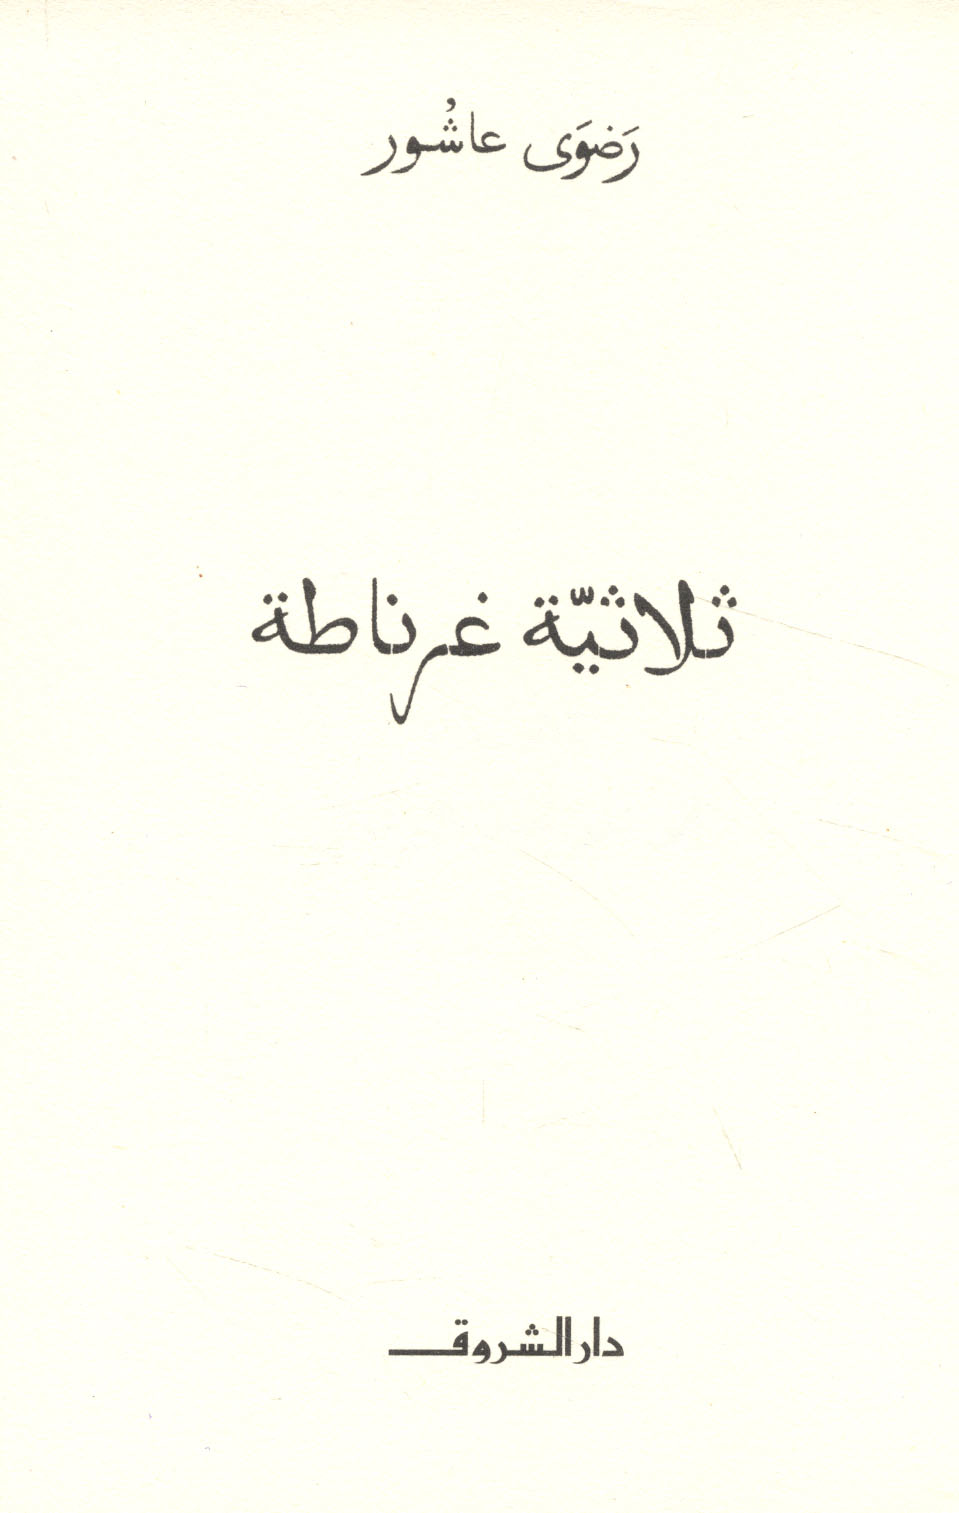 رَضوَى عاشُور
ثلاثيّة غرناطة
دار الشروق